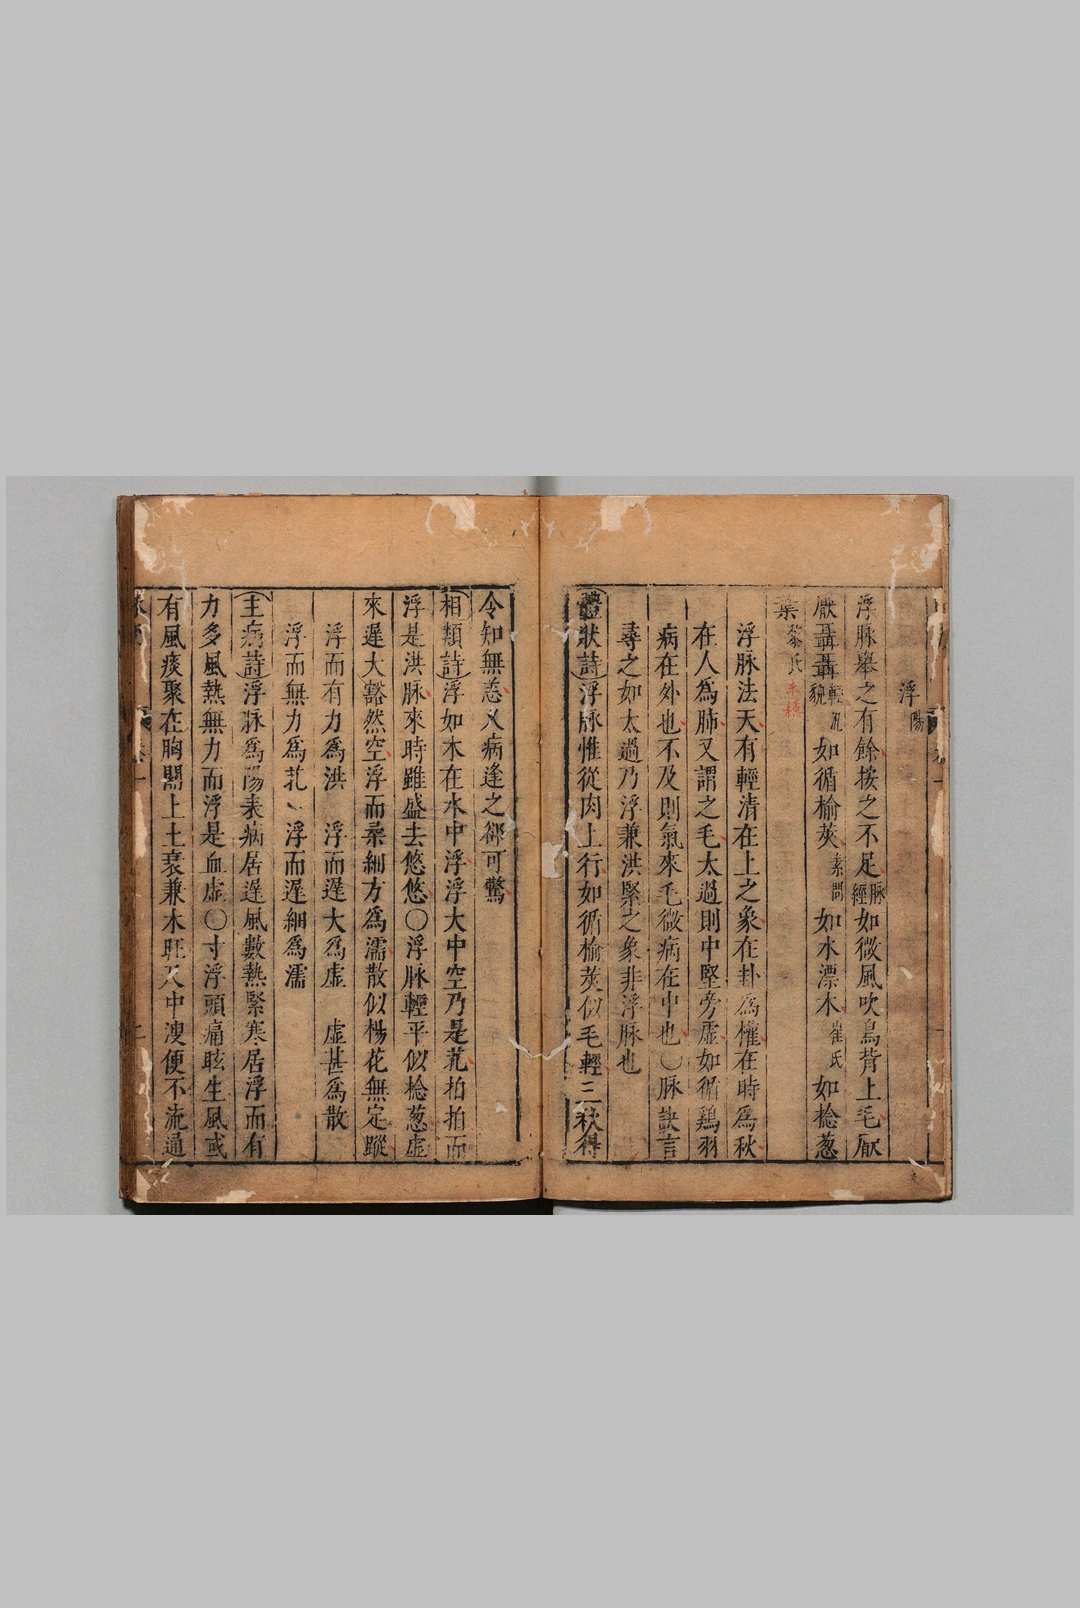 浮陽
浮脉舉之有餘按之不足脉經如微風吹鳥背上毛厭
厭聶聶輕汎貌如循榆莢素問如水漂木崔氏如捻葱
葉黎氏
浮脉法天有輕清在上之象在卦爲權在時爲秋
在人爲肺又謂之毛太過則中堅旁虛如循鷄羽
病在外也不及則氣來毛微病在中也○脉訣言
尋之如太過乃浮兼洪緊之象非浮脉也
體狀詩浮脉惟從肉上行如循榆莢似毛輕三秋得
令知無恙乂病逢之卻可驚
相類詩浮如木在水中浮浮大中空乃是芤拍拍而
浮是洪脉來時雖盛去悠悠○浮脉輕平似捻葱虛
來遲大豁然空浮而柔細方爲濡散似楊花無定蹤
浮而有力爲洪 浮而遲大爲虛 虛甚爲散
浮而無力爲芤 浮而遲細爲濡
主病詩浮脉爲陽表病居遲風數熱緊寒居浮而有
力多風熱無力而浮是血虛○寸浮頭痛眩生風或
有風痰聚在胸關上土衰兼木旺尺中溲便不流通